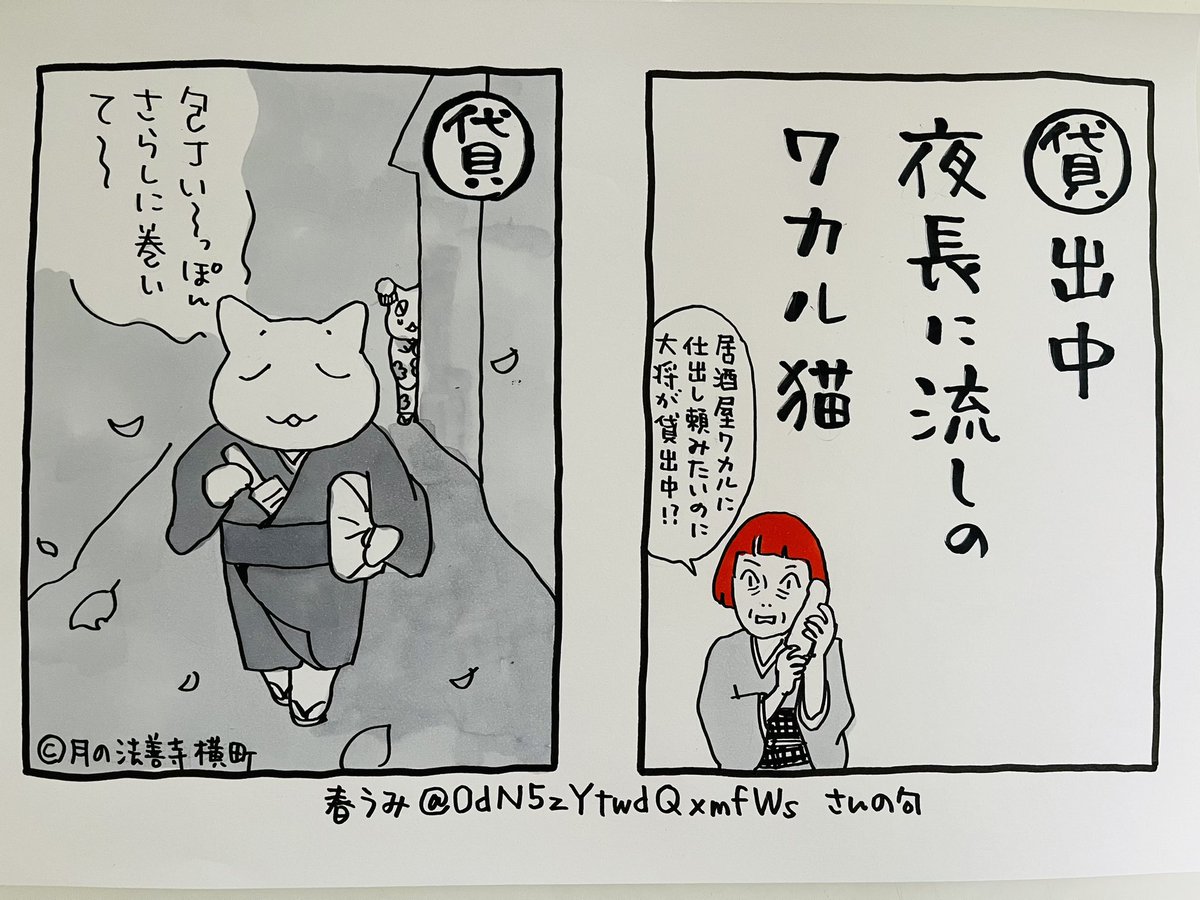 貸出中
夜長に流しの
ワカル猫
居酒屋ワカルに
仕出し頼みたいのに
大将が貸出中!?
貸
包丁い〜っぽん
さらしに巻い
て〜
©月の法善寺横町
春うみ@OdN5zYtwdQxmfWs さんの句